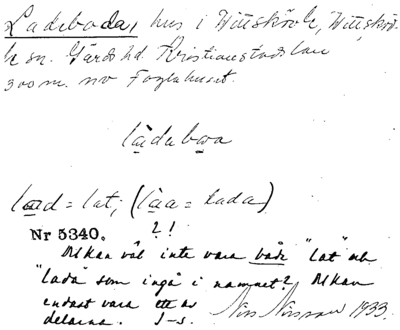 Ladeboda, hus i Vittskövle, Vittsköv-
le sn. Gärds hd Kristianstads län
300 m. nv Foglahuset.
làdebωa
lad = lat; (làa = lada)
?!
Nr 5340.
Det kan väl inte vara både "lat" och
"lada" som ingå i namnet? Det kan
endast vara ett av
delarna. I-s.
Nils Nilsson 1933.